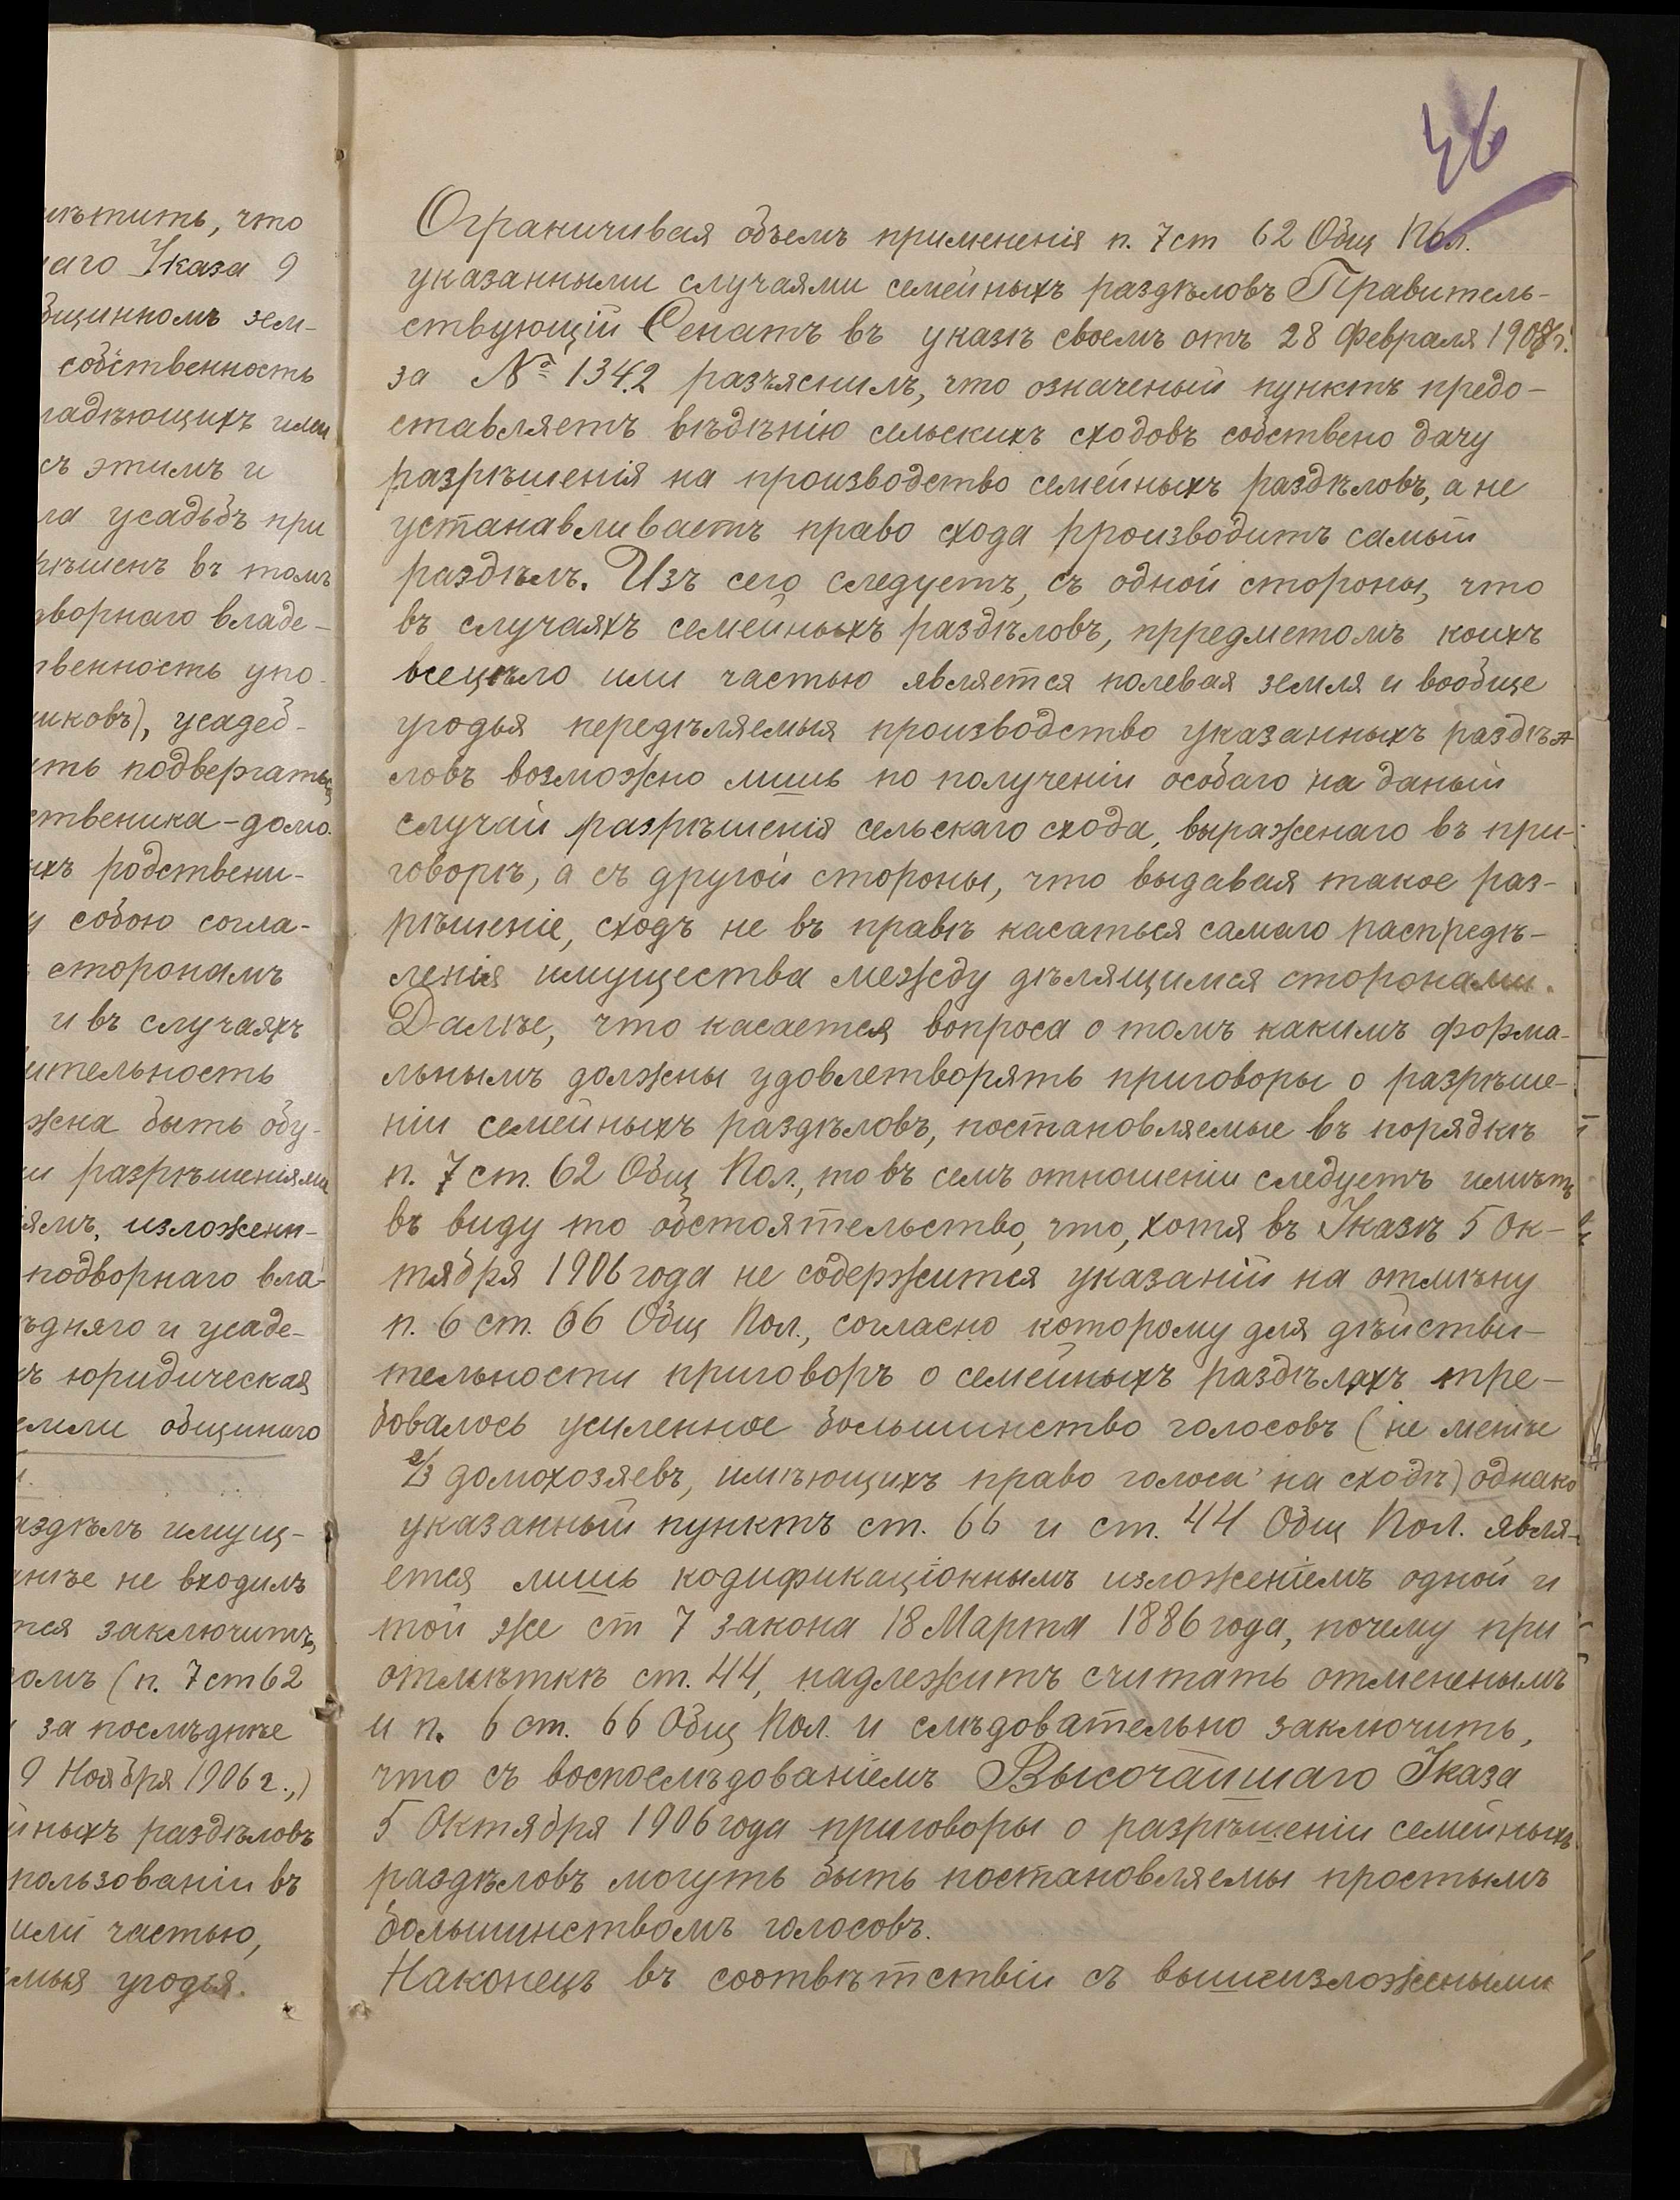 46
мѣтить, что
аго Указа 9
бщинномъ зем-
собственность
ладѣющихъ ими
съ этимъ и
ла усадьбъ при
рѣшенъ въ томъ
дворнаго владе-
твенность упо-
иковъ), усадеб-
ить подвергаться
ственика-домо-
ихъ родствени-
у собою согла-
сторонамъ
и въ случаяхъ
ительность
жна быть обу-
и разрѣшеніями
ямъ, изложенн-
подворнаго вла-
ѣдняго и усаде-
ъ юридическая
емли общинаго
аздѣлъ имущ-
анѣе не входилъ
тся заключить,
омъ (п. 7 ст 62
за послѣднѣе
9 Ноября 1906 г.,)
йныхъ раздѣловъ
пользованіи въ
или частью,
мыя угодья.
Ограничивая объемъ примененія п. 7 ст 62 Общ Пол.
указанными случаями семейныхъ раздѣловъ Правитель-
ствующій Сенатъ въ указѣ своемъ отъ 28 Февраля 1908 г.
за № 1342 разъяснилъ, что означеный пунктъ предо-
ставляетъ вѣдѣнію сельскихъ сходовъ собствено дачу
разрѣшенія на производство семейныхъ раздѣловъ, а не
устанавливаетъ право схода производитъ самый
раздѣлъ. Изъ сего следуетъ, съ одной стороны, что
въ случаяхъ семейныхъ раздѣловъ, прредметомъ коихъ
всецѣло или частью является полевая земля и вообще
угодья передѣляемыя производство указанныхъ раздѣ-
ловъ возможно лишь по полученіи особаго на даный
случай разрѣшенія сельскаго схода, выраженаго въ при-
говорѣ, а съ другой стороны, что выдавая такое раз-
рѣшеніе, сходъ не въ правѣ касаться самаго распредѣ-
ленія имущества между дѣлящимся сторонами.
Далѣе, что касается вопроса о томъ какимъ форма-
льнымъ должны удовлетворять приговоры о разрѣше-
ніи семейныхъ раздѣловъ, постановляемые въ порядкѣ
п. 7 ст. 62 Общ Пол., то въ семъ отношеніи следуетъ имѣть
въ виду то обстоятельство, что, хотя въ Указѣ 5 Ок-
тября 1906 года не содержится указаній на отмѣну
п. 6 ст. 66 Общ Пол., согласно которому для дѣйстви-
тельности приговоръ о семейныхъ раздѣлахъ тре-
бовалось усиленное большинство голосовъ (не менѣе
2/3 домохозяевъ, имѣющихъ право голоса на сходѣ) однако
указанный пунктъ ст. 66 и ст. 44 Общ Пол. явля-
ется лишь кодификаціоннымъ изложеніемъ одной и
той же ст 7 закона 18 Марта 1886 года, почему при
отмѣткѣ ст. 44, надлежитъ считать отмененымъ
и п. 6 ст. 66 Общ Пол. и слѣдовательно заключить,
что съ воспослѣдованіемъ Высочайшаго Указа
5 Октября 1906 года приговоры о разрѣшеніи семейныхъ
раздѣловъ могутъ быть постановляемы простымъ
большинствомъ голосовъ.
Наконецъ въ соотвѣтствіи съ вышеизложеными